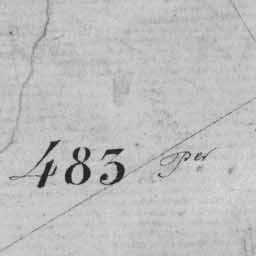 483 Per